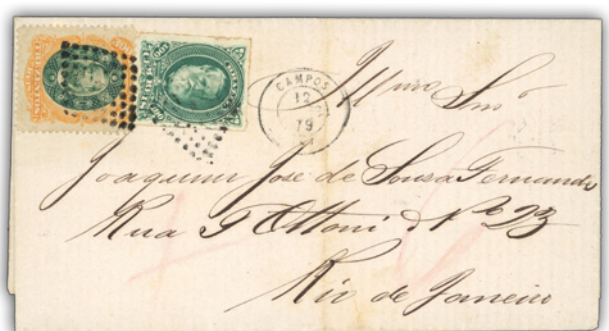 CAMPOS
12
79
Illmo Snr
Joaquim José de Souza Fernandes
Rua T Ottoni No 23
Rio de Janeiro